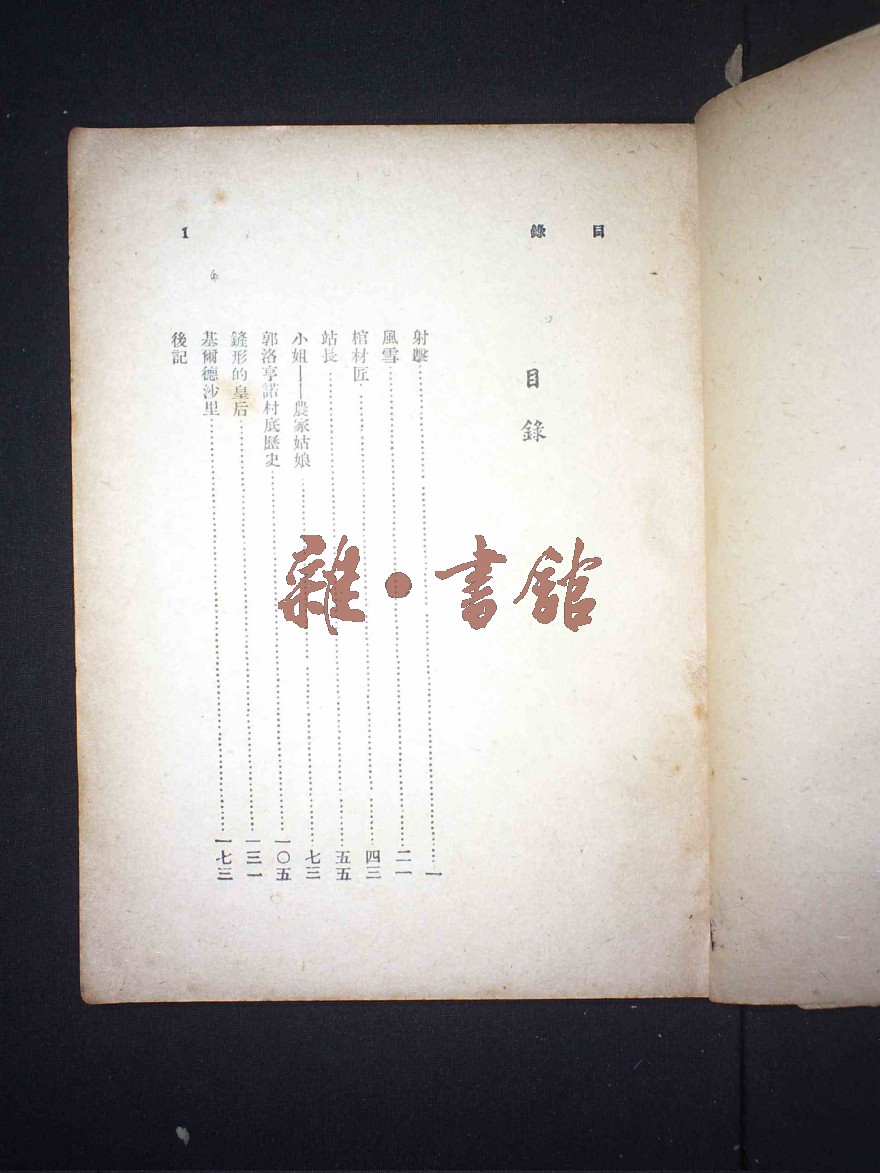 目 錄
1
目錄
射擊……一
風雪……二一
棺材匠……四三
站長……五五
小姐——農家姑娘……七三
郭洛亨諾村底歷史……一〇五
鏟形的皇后……一三一
基爾德沙里……一七三
後記
雜·書館